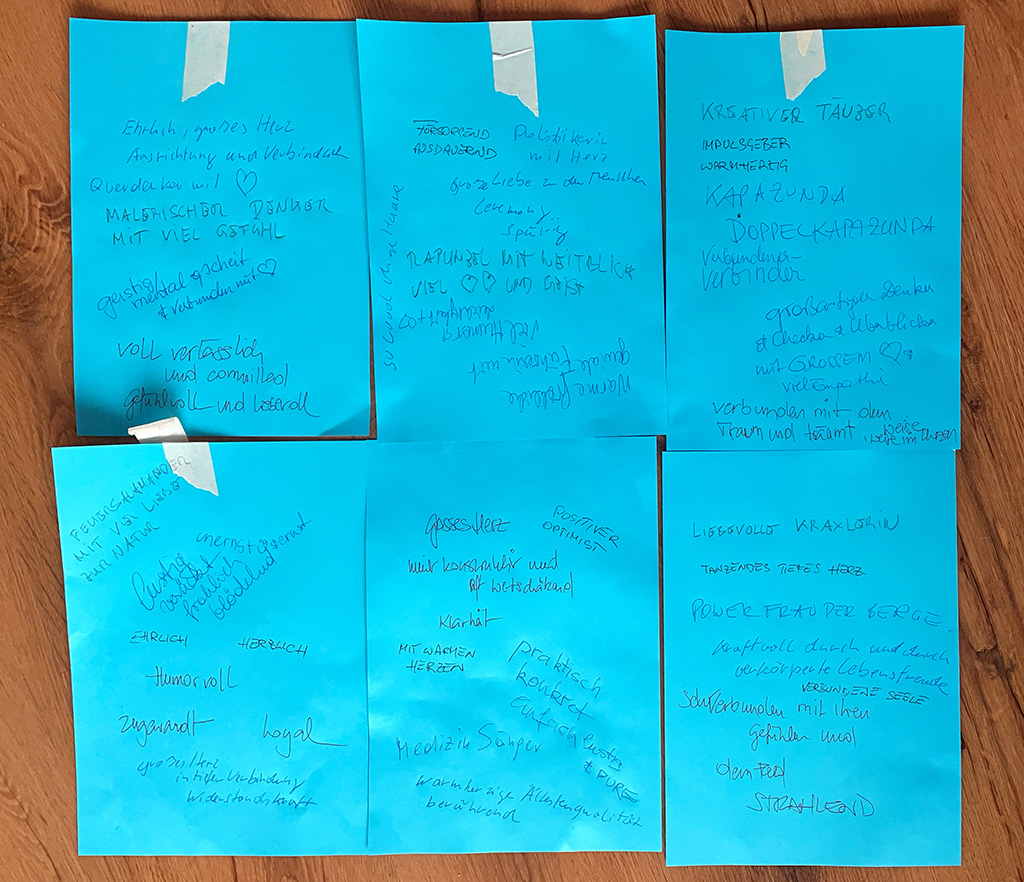 Ehrlich, großes Herz
Ausrichtung und Verbindach
Querdenker mit ♡
MALERISCHER DENKER
MIT VIEL GEFÜHL
geistig
mental gscheit
& verbunden mit ♡
VOLL verlässlich
und committed
Gefühlvoll und liebevoll
FÜRSORGEND
AUSDAUERND
Politikerin
mit Herz
große Liebe zu den Menschen
Ceremony
Spüring
RAPUNZEL MIT WEITBLICK
VIEL ♡ ♡ UND GEIST
viel Humor &
Warme fröhliche
geniale Führerin mit
KREATIVER TÄUBER
IMPULSGEBER
WARMHERZIG
KAPAZUNDA
DOPPELKAPAZUNDA
Verbundener
VERBINDER
großartiger Denker
& Checker & Überblicker
mit GROSSEM ♡ &
viel Empathie
verbunden mit dem
Traum und träumt
weise
FEUERSALAMANDER
MIT VIEL LIEBE
ZUR NATUR
unernst & ernst
lustig
verrückt
fröhlich
blödelnd
EHRLICH
HERZLICH
Humorvoll
zugewandt
Loyal
großes Herz
in tiefer Verbindung
Widerstandskraft
Gosses Herz
POSITIVER
OPTIMIST
immer konstruktiv und
oft wertschätzend
Klarheit
MIT WARMEN
HERZEN
praktisch
konkret
einfach
& PURE
Medizin Sänger
warmherzige Ältestenqualität
berührend
LIEBEVOLLE KRAXLERIN
TANZENDES TIEFES HERZ
POWERFRAU DER BERGE
Kraftvoll durch und durch
verkörperte Lebensfreude
VERBUNDENE SEELE
Sehr Verbunden mit Ihren
Gefühlen und
dem Feld
STRAHLEND